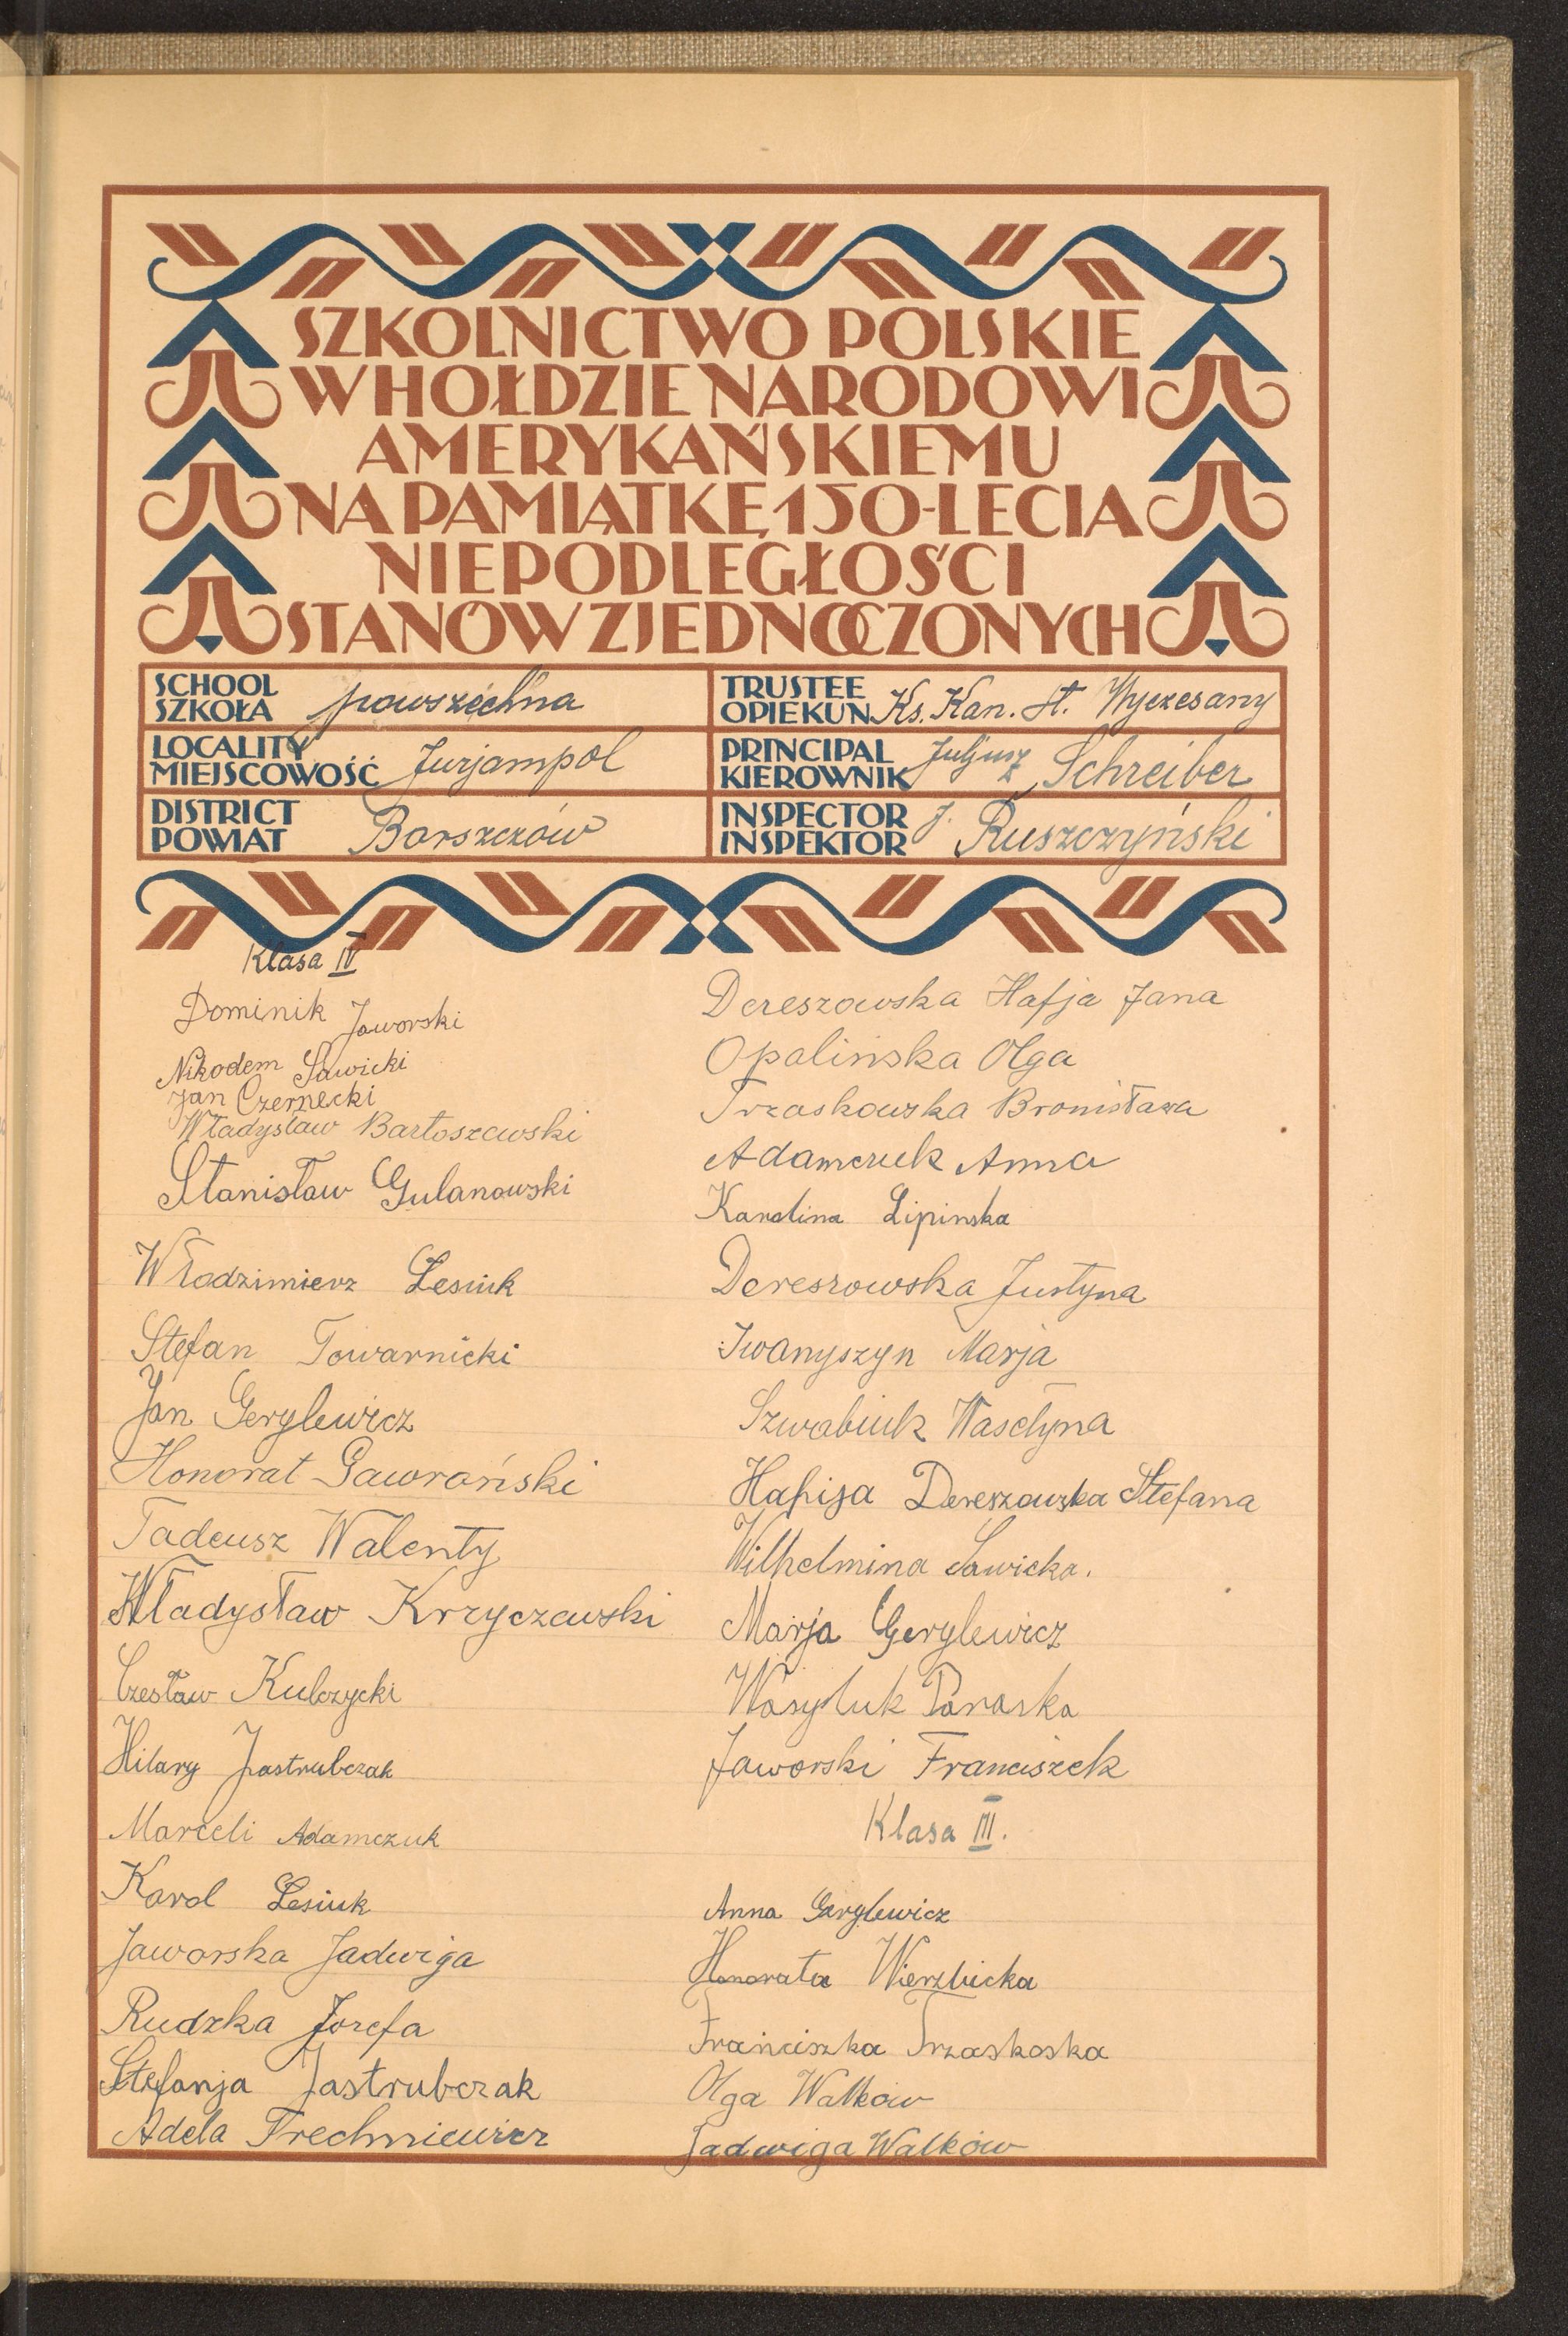 SZKOLNICTWO POLSKIE
W HOŁDZIE NARODOWI
AMERYKAŃSKIEMU
NA PAMIĄTKĘ 150-LECIA
NIEPODLEGŁOŚCI
STANÓW ZJEDNOCZONYCH
SCHOOL
SZKOŁA powszechna
TRUSTEE
OPIEKUN Ks. Kan. St. Wyczesany
LOCALITY
MIEJSCOWOŚĆ Jurjampol
PRINCIPAL
KIEROWNIK Juljusz Schreiber
DISTRICT
POWIAT Borszczów
INSPECTOR
INSPEKTOR J. Ruszczyński
Klasa IV
Dominik Jaworski
Nikodem Sawicki
Jan Czernecki
Władysław Bartoszewski
Stanisław Gulanowski
Włodzimierz Lesiuk
Stefan Towarnicki
Jan Gerylewicz
Honorat Gawroński
Tadeusz Walenty
Władysław Krzyczewski
Czesław Kulczycki
Hilary Jastrubczak
Marceli Adamczuk
Karol Lesiuk
Jaworska Jadwiga
Rudzka Jozefa
Stefanja Jastrubczak
Adela Trechniewicz
Dereszowska Hafja Jana
Opalińska Olga
Trzaskowska Bronisława
Adamczuk Anna
Karolina Lipinska
Dereszowska Justyna
Iwanyszyn Marja
Szwabiuk Wasełyna
Hafija Dereszowska Stefana
Wilhelmina Sawicka.
Marja Gerylewicz
Wasyluk Paraska
Jaworski Franciszek
Klasa III.
Anna Gerylewicz
Honorata Wierzbicka
Franciszka Trzaskoska
Olga Walków
Jadwiga Walków